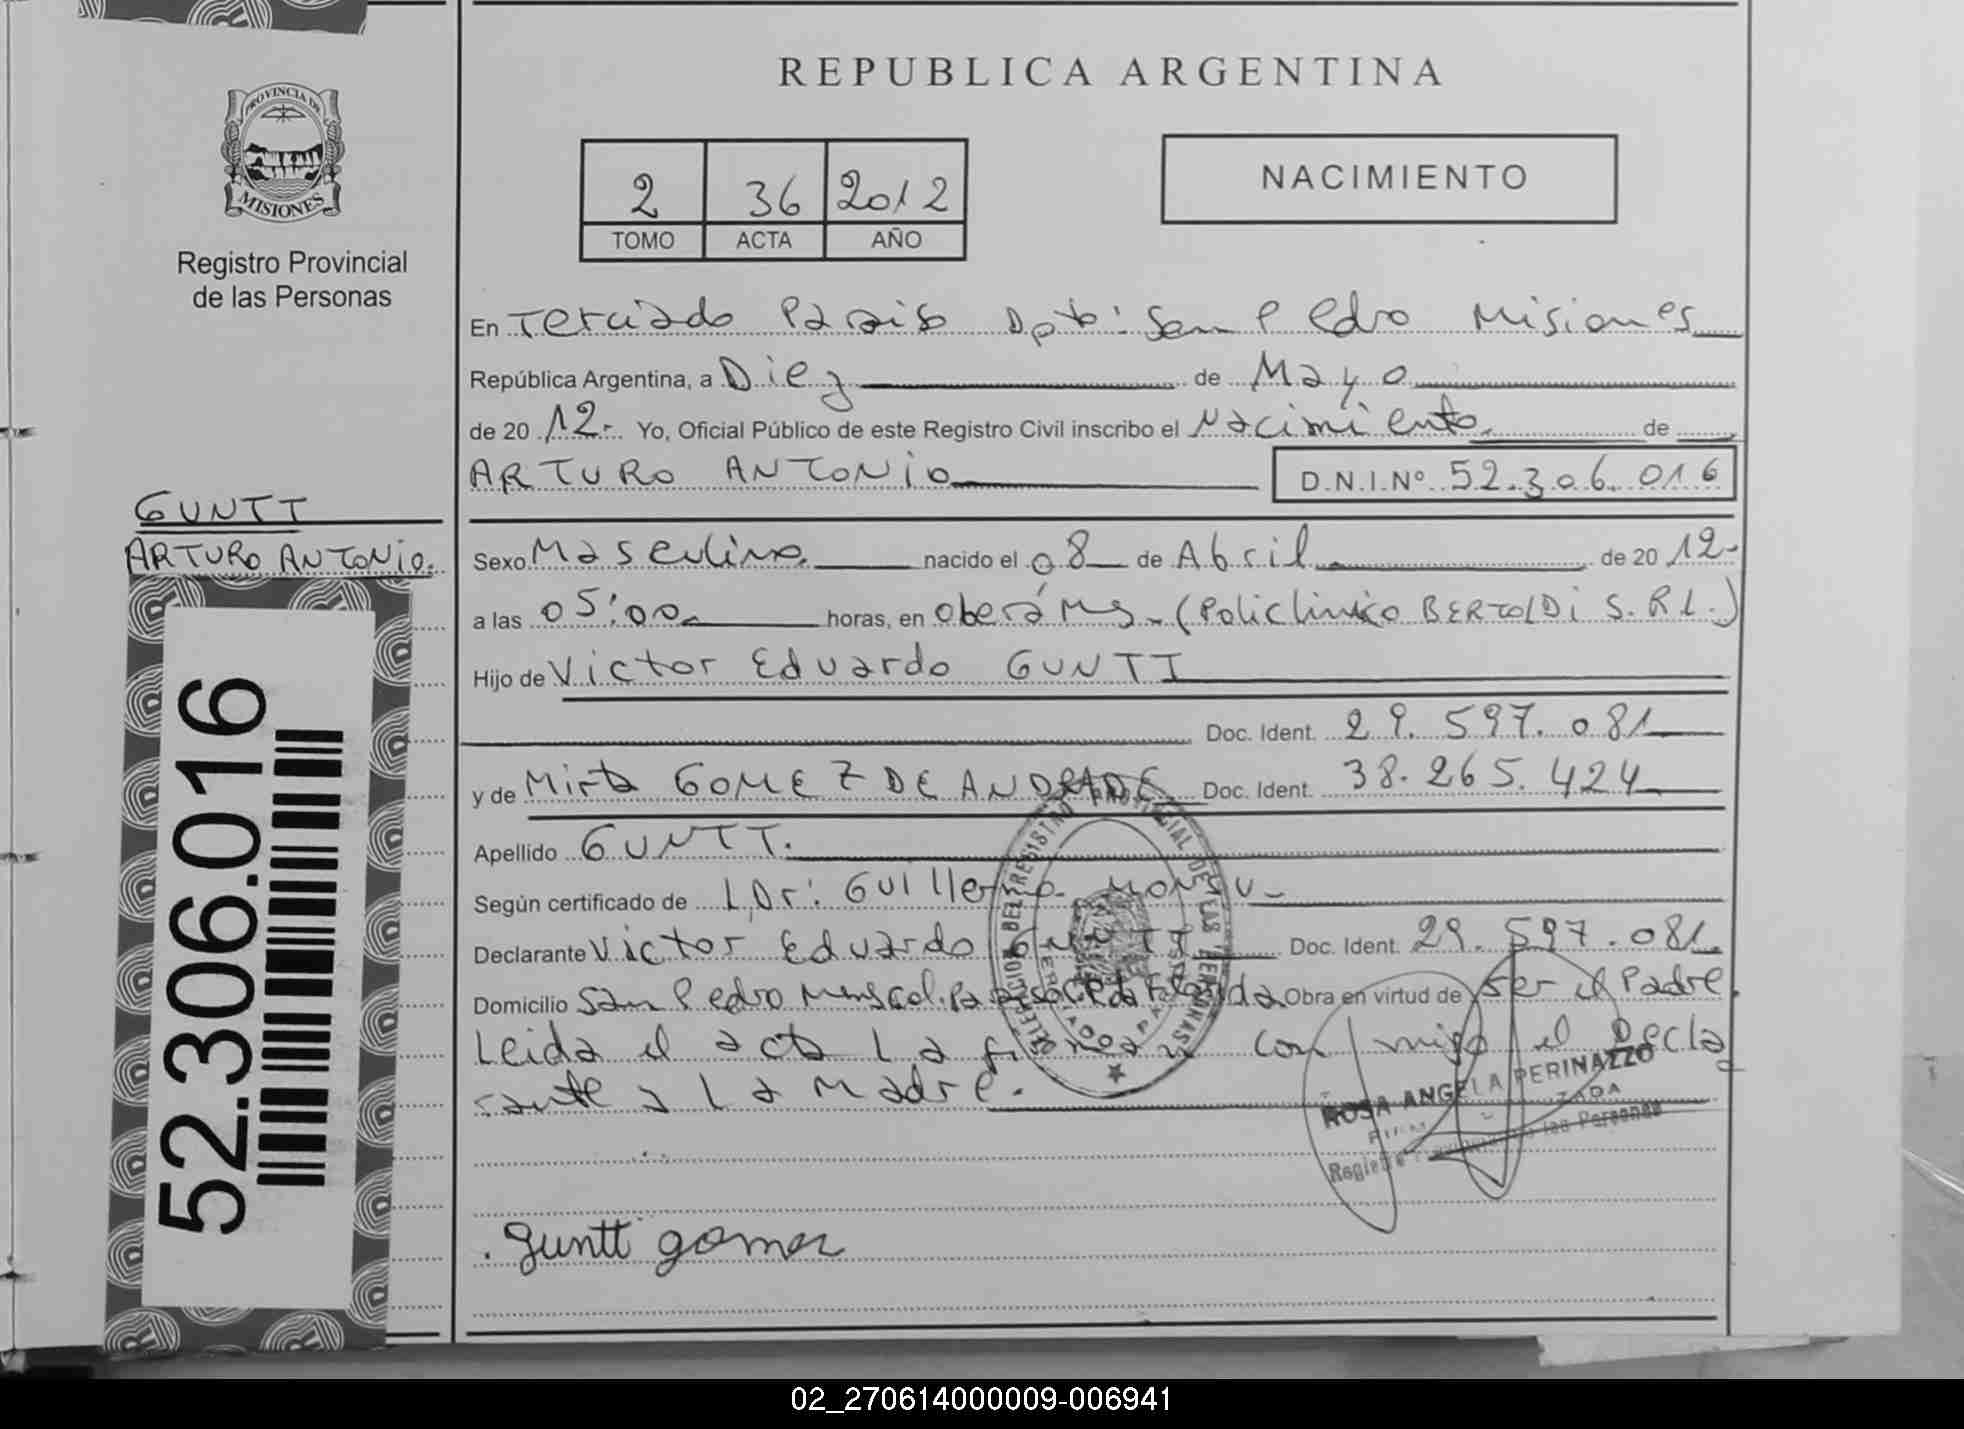 REPUBLICA ARGENTINA
PROVINCIA DE
MISIONES
Registro Provincial
de las Personas
2 36 2012
TOMO ACTA AÑO
NACIMIENTO
En Terciado Paraiso Dpto: San Pedro Misiones
República Argentina, a Diez de Mayo
de 20 12- Yo, Oficial Público de este Registro Civil inscribo el Nacimiento de
ARTURO ANTONIO D.N.I.Nº 52.306.016
GUNTT
ARTURO ANTONIO.
52.306.016
Sexo Masculino nacido el 08 de Abril de 20 12-
a las 05:00 horas, en Oberá Ms. (Policlinico BERTOLDI S.R.L.)
Hijo de Victor Eduardo GUNTT
Doc. Ident. 29.597.081
y de Mirta GOMEZ DE ANDRADE Doc. Ident. 38.265.424
Apellido GUNTT.
Según certificado de L Dr: Guillermo
Declarante Victor Eduardo GUNTT Doc. Ident. 29.597.081.
Domicilio San Pedro Obra en virtud de ser el Padre
Leida el acta La firman con migo el Decla
rante y La Madre.
DELEGACION DEL REGISTRO PROVINCIAL DE LAS PERSONAS
ROSA ANGELA PERINAZZO
las Personas
. Guntt gomez
02_270614000009-006941